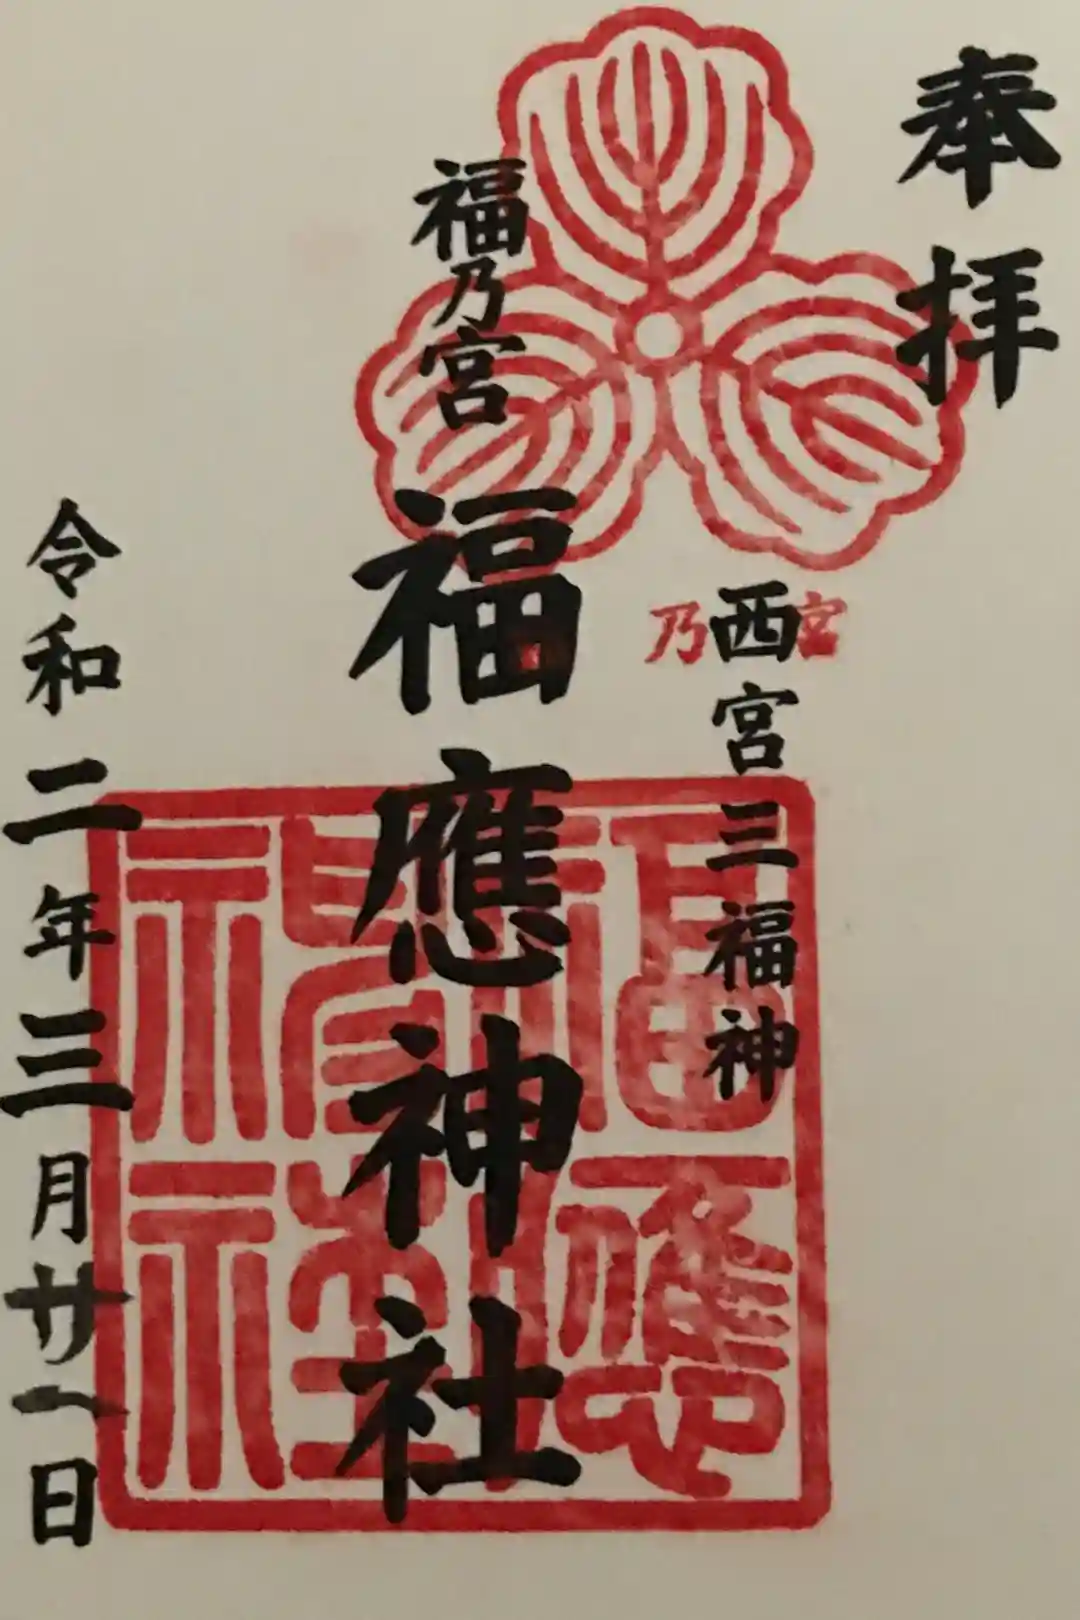 奉拝
西宮三福神
福乃宮
福應神社
令和二年三月廿一日
乃宮
福應神社